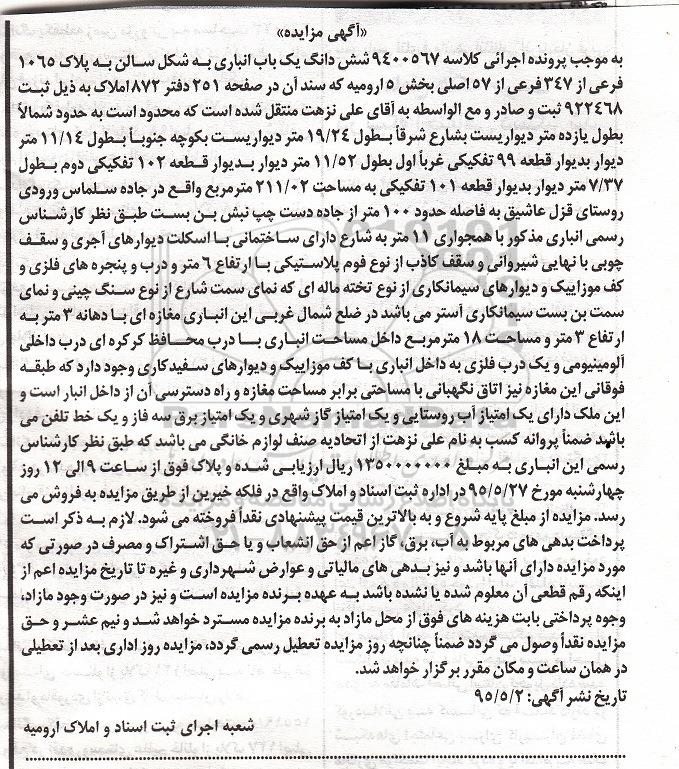 «آگهی مزایده»
به موجب پرونده اجرائی کلاسه ۹۴۰۰۵۶۷ شش دانگ یک باب انباری به شکل سالن به پلاک ۱۰۶۵
فرعی از ۳۴۷ فرعی از ۵۷ اصلی بخش ۵ ارومیه که سند آن در صفحه ۲۵۱ دفتر ۸۷۲ املاک به ذیل ثبت
۹۲۲۴۶۸ ثبت و صادر و مع الواسطه به آقای علی نزهت منتقل شده است که محدود است به حدود شمالاً
بطول یازده متر دیواریست بشارع شرقاً بطول ۱۹/۲۴ متر دیواریست بکوچه جنوباً بطول ۱۱/۱۴ متر
دیوار بدیوار قطعه ۹۹ تفکیکی غرباً اول بطول ۱۱/۵۲ متر دیوار بدیوار قطعه ۱۰۲ تفکیکی دوم بطول
۷/۳۷ متر دیوار بدیوار قطعه ۱۰۱ تفکیکی به مساحت ۲۱۱/۰۲ مترمربع واقع در جاده سلماس ورودی
روستای قزل عاشیق به فاصله حدود ۱۰۰ متر از جاده دست چپ نبش بن بست طبق نظر کارشناس
رسمی انباری مذکور با همجواری ۱۱ متر به شارع دارای ساختمانی با اسکلت دیوارهای آجری و سقف
چوبی با نهایی شیروانی و سقف کاذب از نوع فوم پلاستیکی با ارتفاع ۶ متر و درب و پنجره های فلزی و
کف موزاییک و دیوارهای سیمانکاری از نوع تخته ماله ای که نمای سمت شارع از نوع سنگ چینی و نمای
سمت بن بست سیمانکاری آستر می باشد در ضلع شمال غربی این انباری مغازه ای با دهانه ۳ متر به
ارتفاع ۳ متر و مساحت ۱۸ مترمربع داخل مساحت انباری با درب محافظ کرکره ای درب داخلی
آلومینیومی و یک درب فلزی به داخل انباری با کف موزاییک و دیوارهای سفیدکاری وجود دارد که طبقه
فوقانی این مغازه نیز اتاق نگهبانی با مساحتی برابر مساحت مغازه و راه دسترسی آن از داخل انبار است و
این ملک دارای یک امتیاز آب روستایی و یک امتیاز گاز شهری و یک امتیاز برق سه فاز و یک خط تلفن می
باشد ضمناً پروانه کسب به نام علی نزهت از اتحادیه صنف لوازم خانگی می باشد که طبق نظر کارشناس
رسمی این انباری به مبلغ ۱۳۵۰۰۰۰۰۰۰ ریال ارزیابی شده و پلاک فوق از ساعت ۹ الی ۱۲ روز
چهارشنبه مورخ ۹۵/۵/۲۷ در اداره ثبت اسناد و املاک واقع در فلکه خیرین از طریق مزایده به فروش می
رسد. مزایده از مبلغ پایه شروع و به بالاترین قیمت پیشنهادی نقداً فروخته می شود. لازم به ذکر است
پرداخت بدهی های مربوط به آب، برق، گاز اعم از حق انشعاب و یا حق اشتراک و مصرف در صورتی که
مورد مزایده دارای آنها باشد و نیز بدهی های مالیاتی و عوارض شهرداری و غیره تا تاریخ مزایده اعم از
اینکه رقم قطعی آن معلوم شده یا نشده باشد به عهده برنده مزایده است و نیز در صورت وجود مازاد،
وجوه پرداختی بابت هزینه های فوق از محل مازاد به برنده مزایده مسترد خواهد شد و نیم عشر و حق
مزایده نقداً وصول می گردد ضمناً چنانچه روز مزایده تعطیل رسمی گردد، مزایده روز اداری بعد از تعطیلی
در همان ساعت و مکان مقرر برگزار خواهد شد.
تاریخ نشر آگهی: ۹۵/۵/۲
شعبه اجرای ثبت اسناد و املاک ارومیه